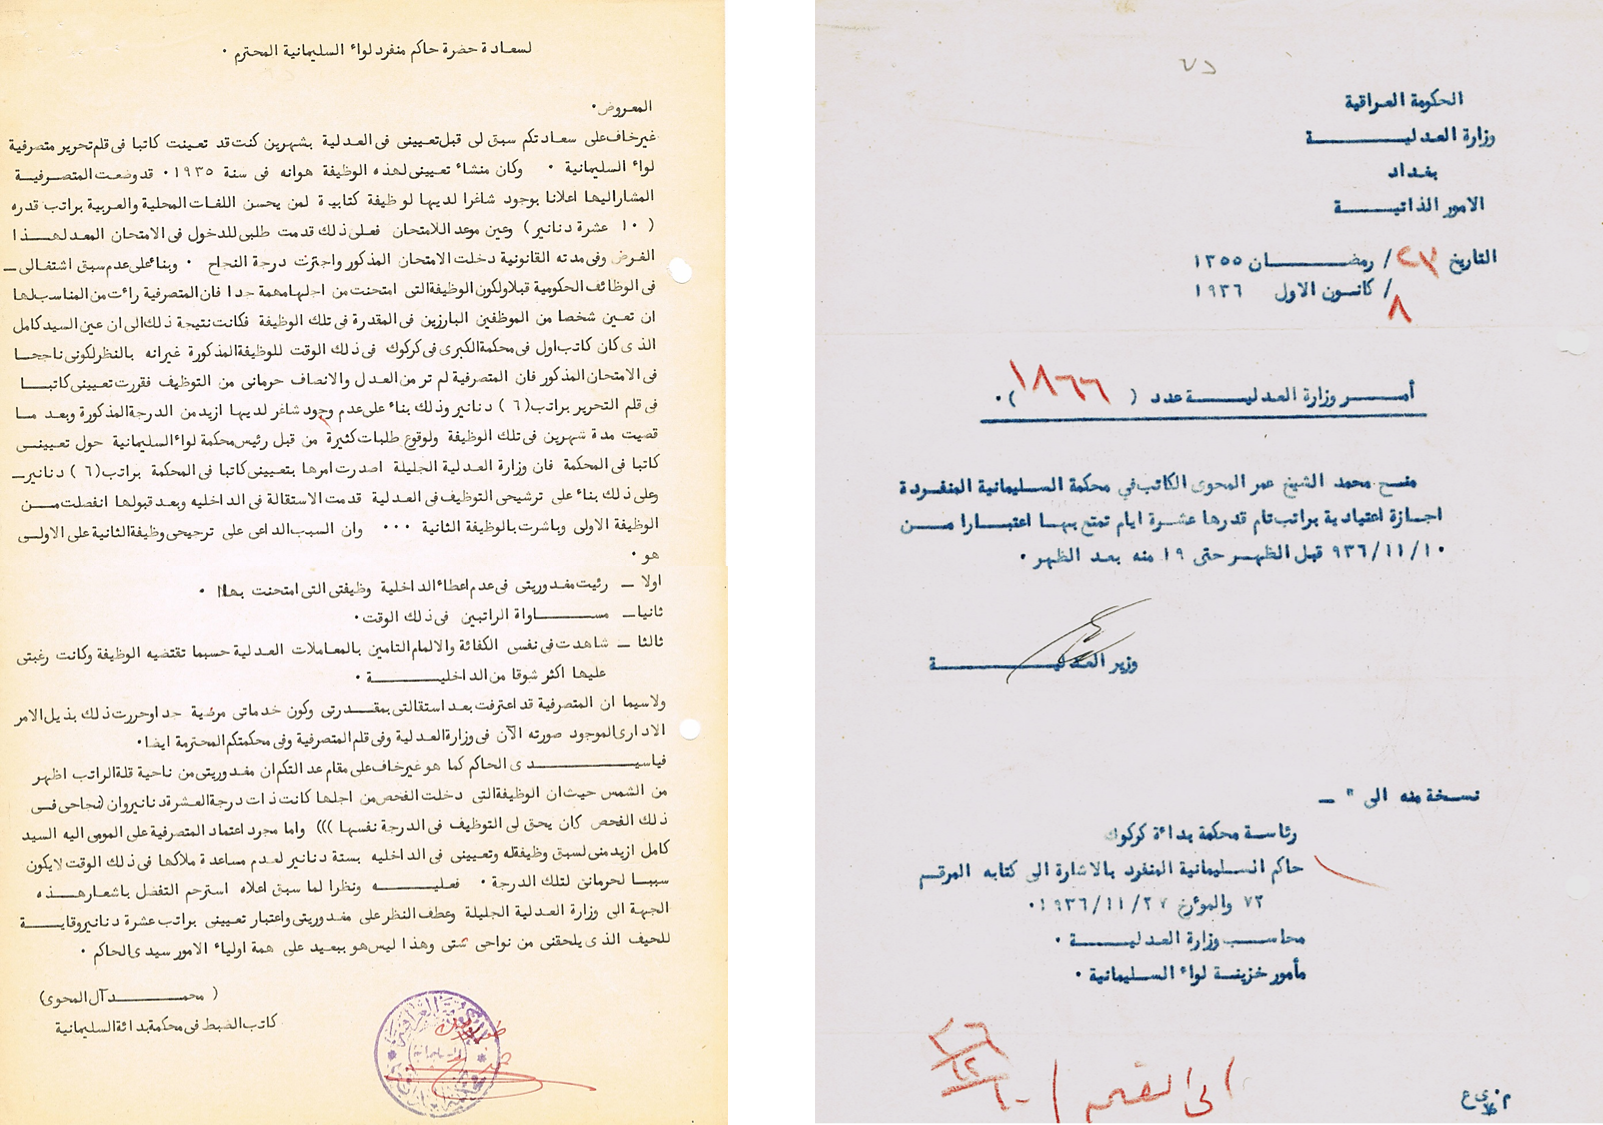 لسعادة حضرة حاكم منفرد لواء السليمانية المحترم ٠
المعروض٠
غير خاف على سعادتكم سبق لى قبل تعيينى فى العدلية بشهرين كنت قد تعينت كاتبا فى قلم تحرير متصرفية
لواء السليمانية ٠ وكان منشاء تعيينى لهذه الوظيفة هوانه فى سنة ١٩٣٥٠ قد وضعت المتصرفية
المشاراليها اعلانا بوجود شاغرا لديها لوظيفة كتابية لمن يحسن اللغات المحلية والعربية براتب قدره
( ١٠ عشرة دنانير) وعين موعد اللامتحان فعلى ذلك قدمت طلبى للدخول فى الامتحان المعد لهذا
الغرض وفى مدته القانونية دخلت الامتحان المذكور واجتزت درجة النجاح ٠ وبناء على عدم سبق اشتغالى ـ
فى الوظائف الحكومية قبلا ولكون الوظيفة التى امتحنت من اجلها مهمة جدا فان المتصرفية راءت من المناسب لها
ان تعين شخصا من الموظفين البارزين فى المقدرة فى تلك الوظيفة فكانت نتيجة ذلك الى ان عين السيد كامل
الذى كان كاتب اول فى محكمة الكبرى فى كركوك فى ذلك الوقت للوظيفة المذكورة غيرانه بالنظر لكونى ناجحا
فى الامتحان المذكور فان المتصرفية لم تر من العدل والانصاف حرمانى من التوظيف فقررت تعيينى كاتبا
فى قلم التحرير براتب (٦ ) دنانير وذلك بناء على عدم وجود شاغر لديها ازيد من الدرجة المذكورة وبعد ما
قضيت مدة شهرين فى تلك الوظيفة ولوقوع طلبات كثيرة من قبل رئيس محكمة لواء السليمانية حول تعيينى
كاتبا فى المحكمة فان وزارة العدلية الجليلة اصدرت امرها بتعيينى كاتبا فى المحكمة براتب (٦ ) دنانير ـ
وعلى ذلك بناء على ترشيحى التوظيف فى العدلية قدمت الاستقالة فى الداخليه وبعد قبولها انفصلت من
الوظيفة الاولى وباشرت بالوظيفة الثانية ٠٠٠ وان السبب الداعى على ترجيحى وظيفة الثانية على الاولى
هو ٠
اولا ـ رئيت مغدوريتى فى عدم اعطاء الداخلية وظيفتى التى امتحنت بها ٠
ثانيا ـ مساواة الراتبين فى ذلك الوقت٠
ثالثا ـ شاهدت فى نفسى الكفائة والالمام التامين بالمعاملات العدلية حسبما تقتضيه الوظيفة وكانت رغبتى
عليها اكثر شوقا من الداخلية ٠
ولاسيما ان المتصرفية قد اعترفت بعد استقالتى بمقدرتى وكون خدماتى مرضية جدا وحررت ذلك بذيل الامر
الادارى الموجود صورته الآن فى وزارة العدلية وفى قلم المتصرفية وفى محكمتكم المحترمة ايضا٠
فياسيدى الحاكم كما هو غير خاف على مقام عدالتكم ان مغدوريتى من ناحية قلة الراتب اظهر
من الشمس حيث ان الوظيفة التى دخلت الفحص من اجلها كانت ذات درجة العشرة دنانير وان نجاحى فى
ذلك الفحص كان يحق لى التوظيف فى الدرجة نفسها ))) واما مجرد اعتماد المتصرفية على المومى اليه السيد
كامل ازيد منى لسبق وظيفته وتعيينى فى الداخليه بستة دنانير لعدم مساعدة ملاكها فى ذلك الوقت لايكون
سببا لحرمانى لتلك الدرجة ٠ فعليه ونظرا لما سبق اعلاه استرحم التفضل باشعار هذه
الجهة الى وزارة العدلية الجليلة وعطف النظر على مغدوريتى واعتبار تعيينى براتب عشرة دنانير وقاية
للحيف الذى يلحقنى من نواحى شتى وهذا ليس هو ببعيد على همة اولياء الامور سيدى الحاكم ٠
( محمد آل المحوى)
كاتب الضبط فى محكمة بداءة السليمانية
الحكومة العراقية
وزارة العدلية
بغداد
الامور الذاتية
التاريخ ٢٣/ رمضان ١٣٥٥
٨/ كانون الاول ١٩٣٦
أمر وزارة العدلية عدد ( ١٨٦٦ )٠
منح محمد الشيخ عمر المحوى الكاتب في محكمة السليمانية المنفردة
اجازة اعتيادية براتب تام قدرها عشرة ايام تمتع بها اعتبارا من
٩٣٦/١١/١٠ قبل الظهر حتى ١٩ منه بعد الظهر ٠
وزير العدلية
نسخة منه الى " ـ
رئاسة محكمة بداءة كركوك
حاكم السليمانية المنفرد بالاشارة الى كتابه المرقم
٧٢ والمؤرخ ١٩٣٦/١١/٢٧٠
محاسب وزارة العدلية ٠
مأمور خزينة لواء السليمانية ٠